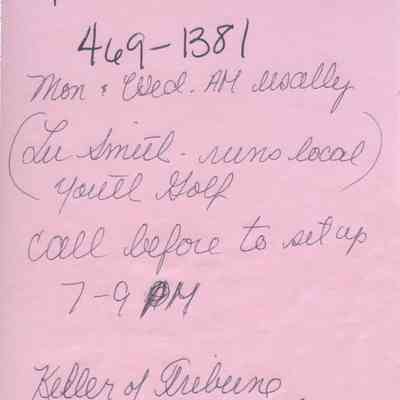 469-1381
Mon & Wed. AM usually
(Lu Smith - runs local)
Youth Golf
call before to set up
7-9 PM
Keller of Tribune